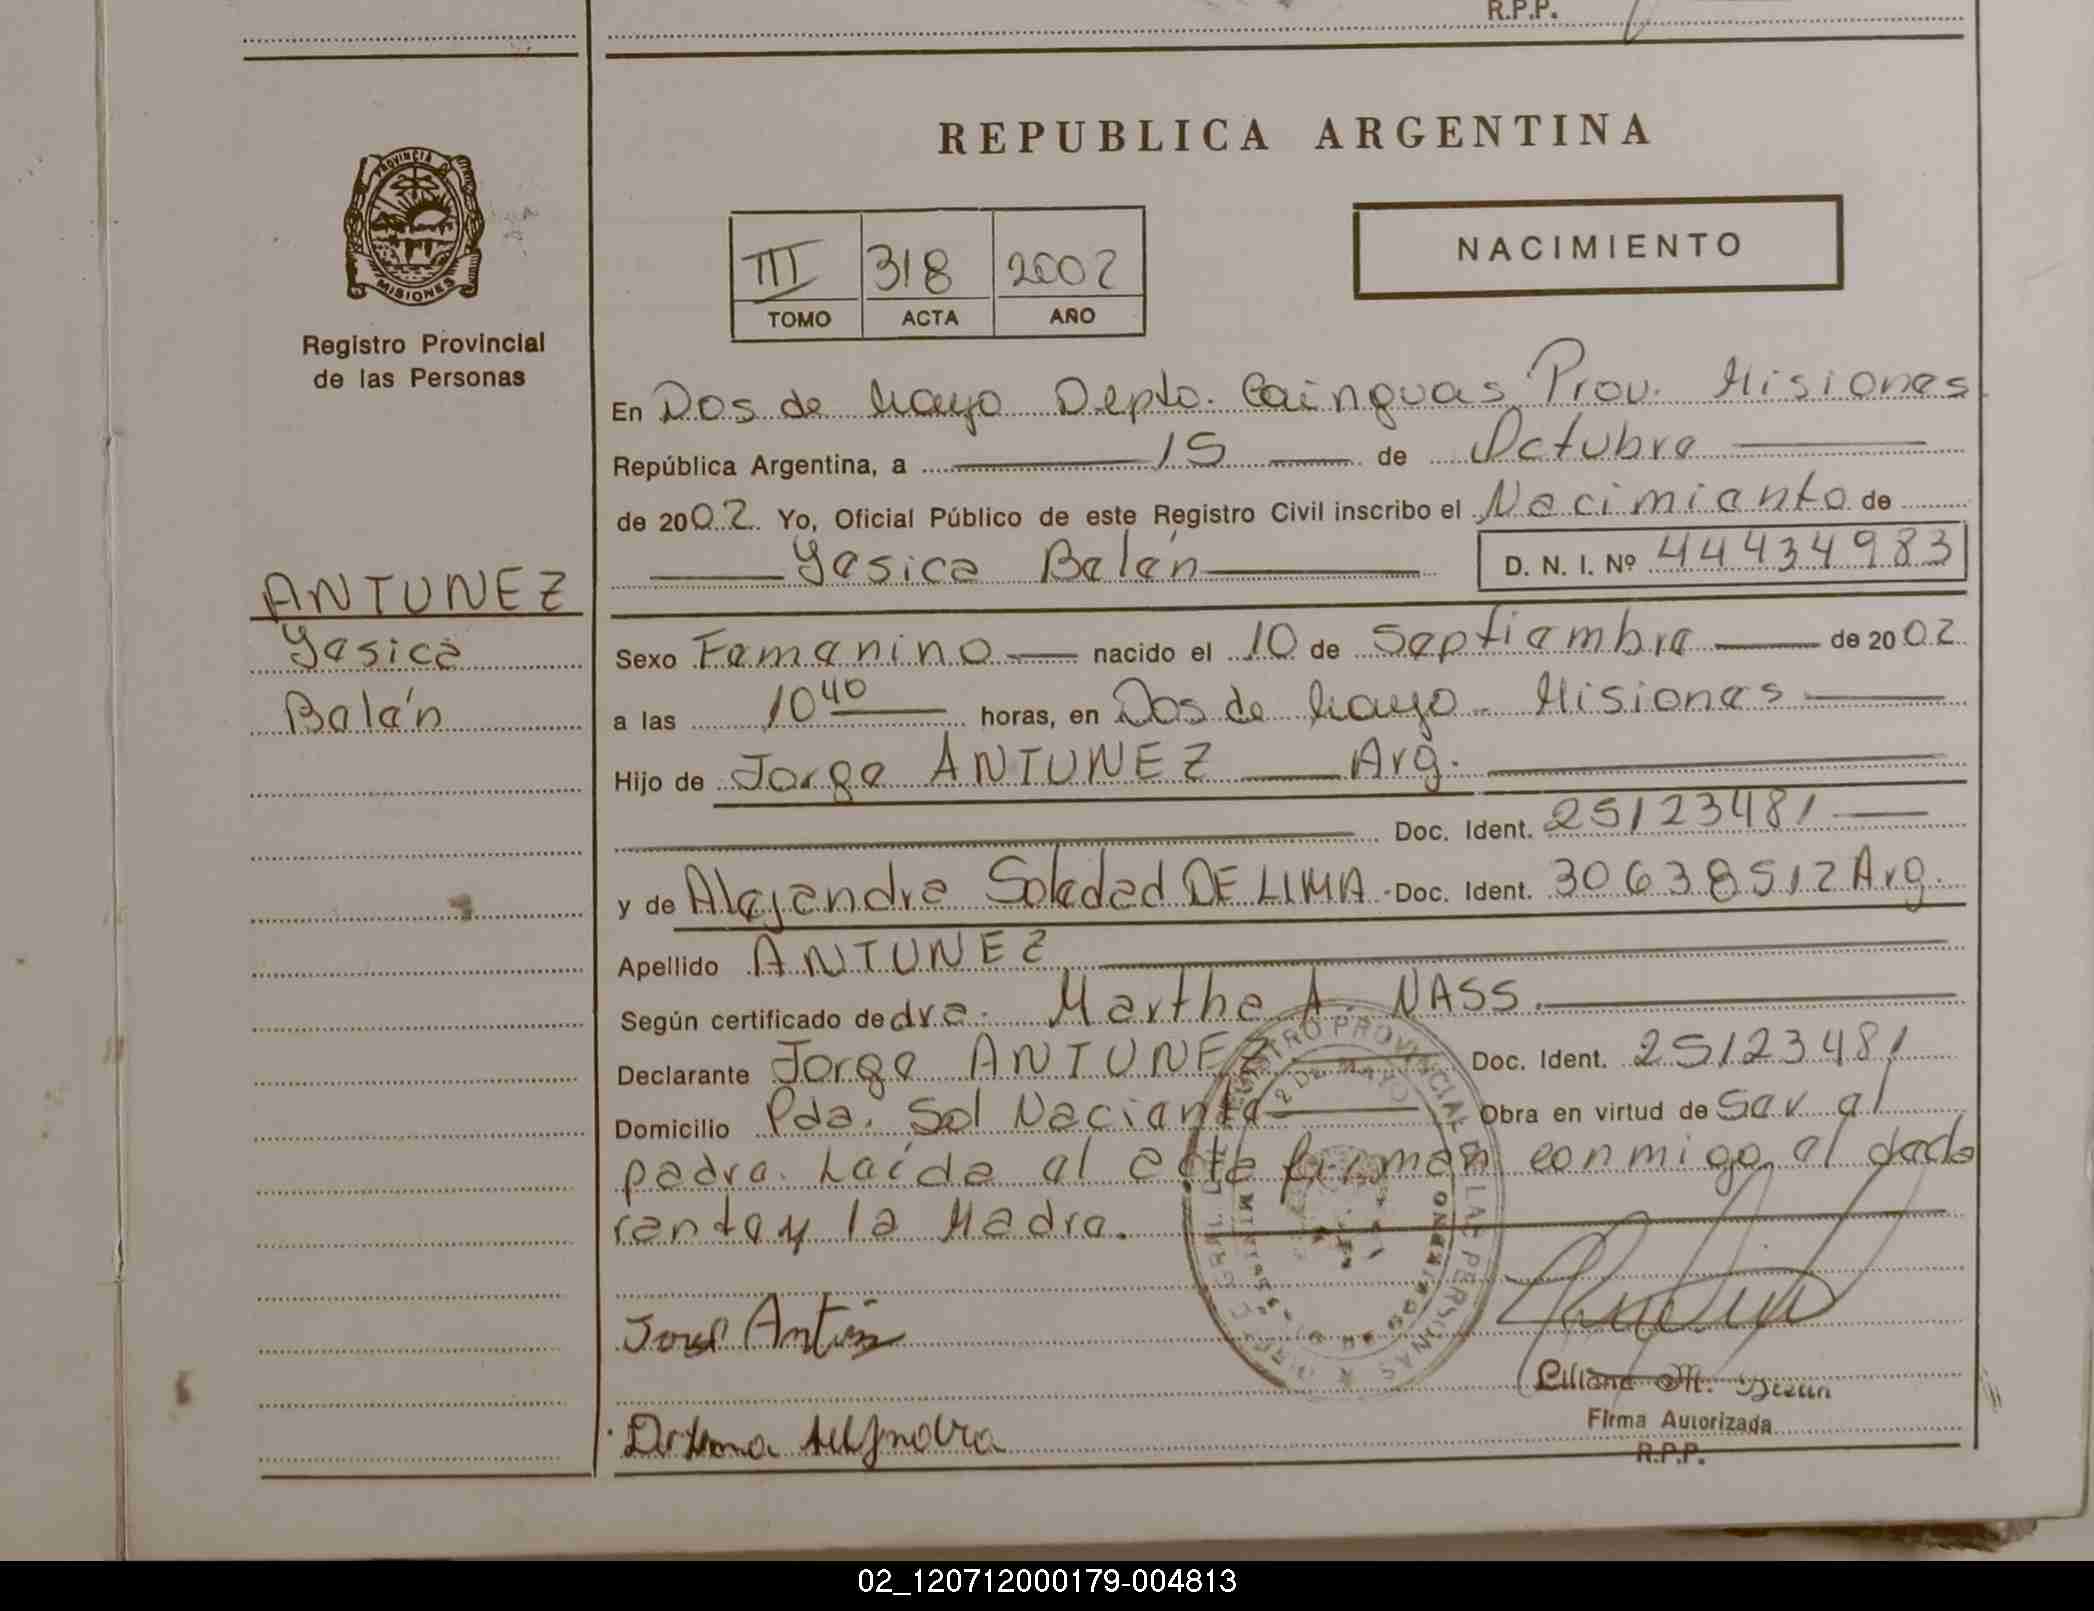 R.P.P.
REPUBLICA ARGENTINA
PROVINCIA DE
MISIONES
Registro Provincial
de las Personas
III 318 2002
TOMO ACTA AÑO
NACIMIENTO
En Dos de Mayo Depto. Cainguas Prov. Misiones
República Argentina, a 15 de Octubre
de 2002 Yo, Oficial Público de este Registro Civil inscribo el Nacimiento de
Yesica Belén D. N. I. Nº 44434983
ANTUNEZ
Yesica
Belén
Sexo Femenino nacido el 10 de Septiembre de 2002
a las 10 40 horas, en Dos de Mayo - Misiones
Hijo de Jorge ANTUNEZ Arg.
Doc. Ident. 25123481
y de Alejandra Soledad DE LIMA Doc. Ident. 30638512 Arg.
Apellido ANTUNEZ
Según certificado de dra. Martha A. NASS.
Declarante Jorge ANTUNEZ Doc. Ident. 25123481
Domicilio Pda. Sol Naciente Obra en virtud de Ser el
padre. Leída el acta firman conmigo el decla
rante y la Madre.
REGISTRO PROVINCIAL DE LAS PERSONAS
2 DE MAYO
Liliana M.
Firma Autorizada
R.P.P.
02_120712000179-004813